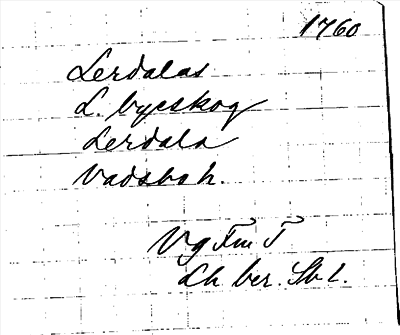 1760
Lerdalas
L. byeskog
Lerdala
Vadsbo h.
Vg Fm T
Lh ber. Sk l.